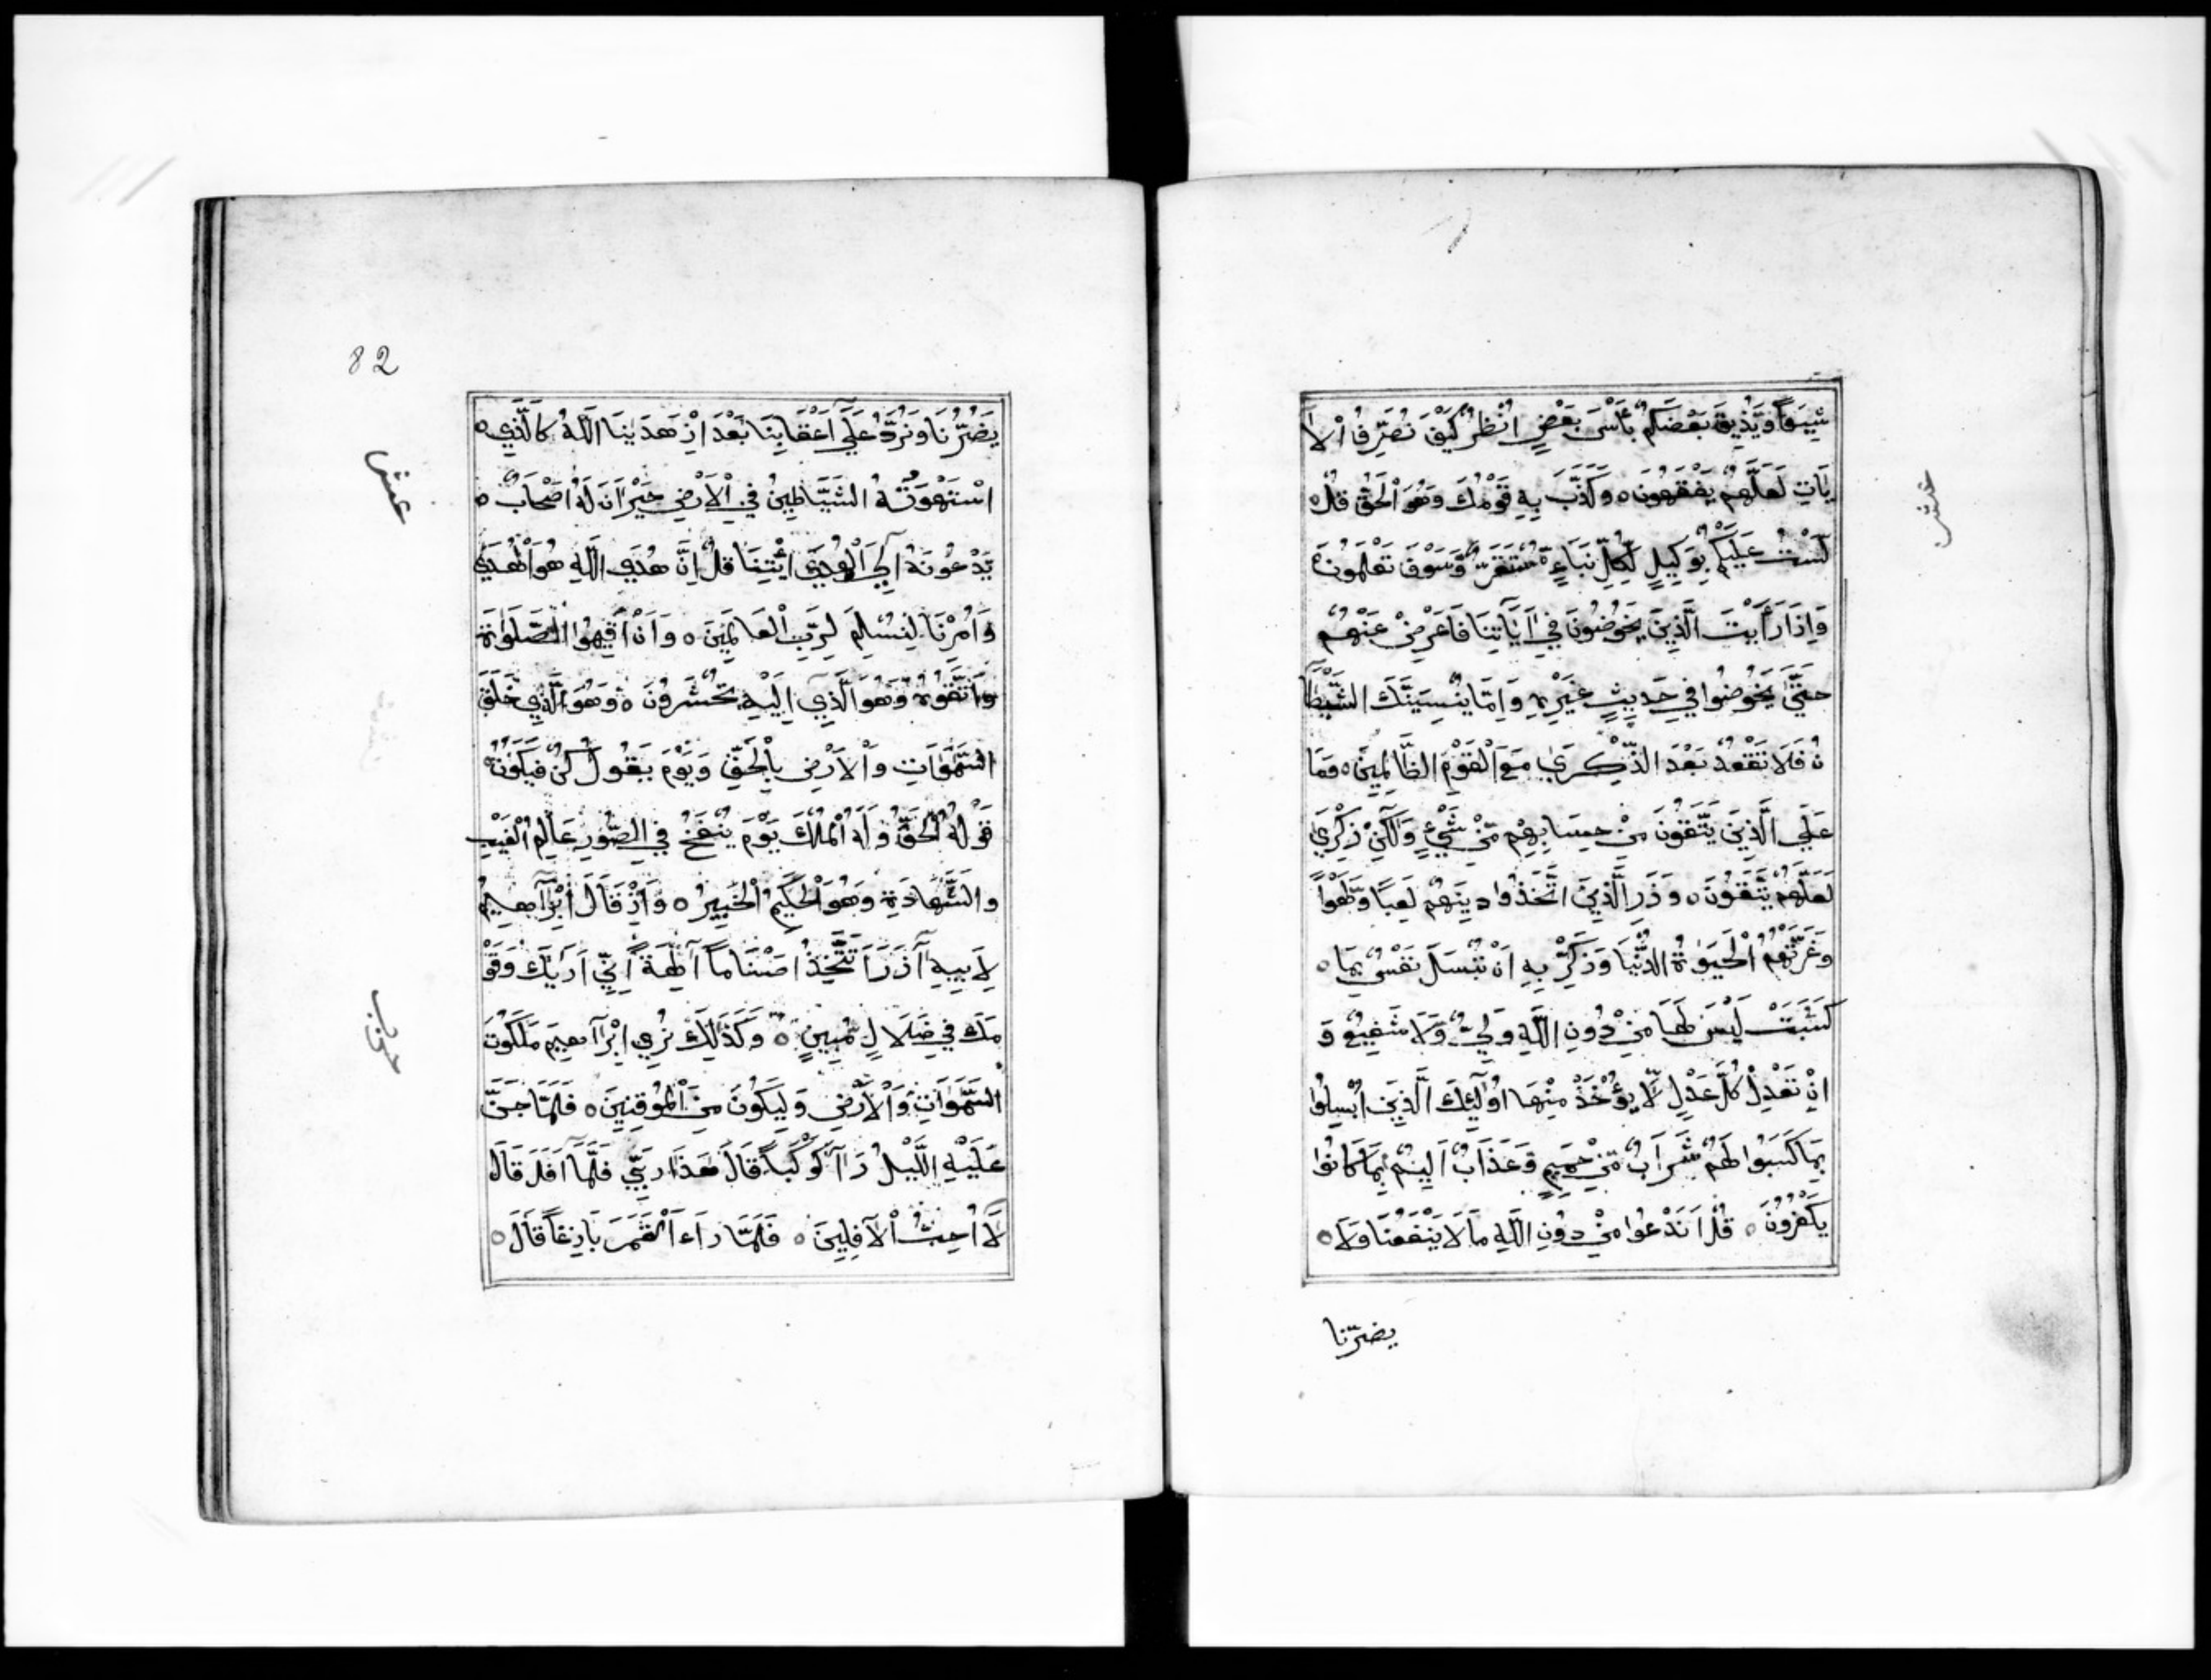 شِيَعًا وَيُذِيقَ بَعْضَكُمْ بَأْسَ بَعْضٍ اُنْظُرْ كَيْفَ نُصَرِّفُ الْاَ
يَاتِ لَعَلَّهُمْ يَفْقَهُونَ ٥ وَكَذَّبَ بِهِ قَوْمُكَ وَهُوَ الْحَقُّ قُلْ ٥
لَسْتُ عَلَيْكُمْ بِوَكِيلٍ لِكُلِّ نَبَاءٍ مُسْتَقَرٌّ وَسَوْفَ تَعْلَمُونَ ٥
وَاِذَا رَأَيْتَ الَّذِينَ يَخُوضُونَ فِي اَيَاتِنَا فَاَعْرِضْ عَنْهُمْ
حَتَّى يَخُوضُوا فِي حَدِيثٍ غَيْرِهِ وَاِمَّا يُنْسِيَنَّكَ الشَّيْطَا
نُ فَلَا تَقْعُدْ بَعْدَ الذِّكْرَي مَعَ الْقَوْمِ الظَّالِمِينَ ٥ وَمَا
عَلَي الَّذِينَ يَتَّقُونَ مِنْ حِسَابِهِمْ مِنْ شَيْءٍ وَلَكِنْ ذِكْرَي
لَعَلَّهُمْ يَتَّقُونَ ٥ وَذَرِ الَّذِينَ اتَّخَذُوا دِينَهُمْ لَعِبًا وَلَهْوًا
وَغَرَّتْهُمُ الْحَيَوةُ الدُّنْيَا وَذَكِّرْ بِهِ اَنْ تُبْسَلَ نَفْسٌ بِمَا ٥
كَسَبَتْ لَيْسَ لَهَا مِنْ دُونِ اللَّهِ وَلِيٌّ وَلَا شَفِيعٌ وَ
اِنْ تَعْدِلْ كُلَّ عَدْلٍ لَا يُؤْخَذْ مِنْهَا اُولَئِكَ الَّذِينَ اُبْسِلُوا
بِمَا كَسَبُوا لَهُمْ شَرَابٌ مِنْ حَمِيمٍ وَعَذَابٌ اَلِيمٌ بِمَا كَانُوا
يَكْفُرُونَ ٥ قُلْ اَنَدْعُوا مِنْ دُونِ اللَّهِ مَا لَا يَنْفَعُنَا وَلَا ٥
يضرّنا
عشر
82
يَضُرُّنَا وَنُرَدُّ عَلَي اَعْقَابِنَا بَعْدَ اِذْ هَدَينَا اللَّهُ كَالَّذِي ٥
اسْتَهْوَتْهُ الشَّيَاطِينُ فِي الْاَرْضِ حَيْرَانَ لَهُ اَصْحَابٌ ٥
يَدْعُونَهُ اِلَي الْهُدَي ائْتِنَا قُلْ اِنَّ هُدَي اللَّهِ هُوَ الْهُدَي
وَاُمِرْنَا لِنُسْلِمَ لِرَبِّ الْعَالَمِينَ ٥ وَاَنْ اَقِيمُوا الصَّلَوةَ
وَاتَّقُوهُ وَهُوَ الَّذِي اِلَيْهِ تُحْشَرُونَ ٥ وَهُوَ الَّذِي خَلَقَ
السَّمَوَاتِ وَالْاَرْضِ بِالْحَقِّ وَيَوْمَ يَقُولُ كُنْ فَيَكُونُ
قَوْلُهُ الْحَقُّ وَلَهُ الْمُلْكَ يَوْمَ يُنْفَخُ فِي الصُّورِ عَالِمُ الْغَيْبِ
وَالشَّهَادَةِ وَهُوَ الْحَكِيمُ الْخَبِيرُ ٥ وَاِذْ قَالَ اِبْرَاهِيمُ
لِاَبِيهِ آزَرَ اَتَتَّخِذُ اَصْنَامًا آلِهَةً اِنِّي اَرَيكَ وَقَوْ
مَكَ فِي ضَلَالٍ مُبِينٍ ٥ وَكَذَلِكَ نُرِي اِبْرَاهِيمَ مَلَكُوتَ
السَّمَوَاتِ وَالْاَرْضِ وَلِيَكُونَ مِنَ الْمُوقِنِينَ ٥ فَلَمَّا جَنَّ
عَلَيْهِ اللَّيْلُ رَآ كَوْكَبًا قَالَ هَذَا رَبِّي فَلَمَّا اَفَلَ قَالَ
لَا اُحِبُّ الْآفِلِينَ ٥ فَلَمَّا رَاَء الْقَمَرَ بَازِغًا قَالَ ٥
عشر
حزب